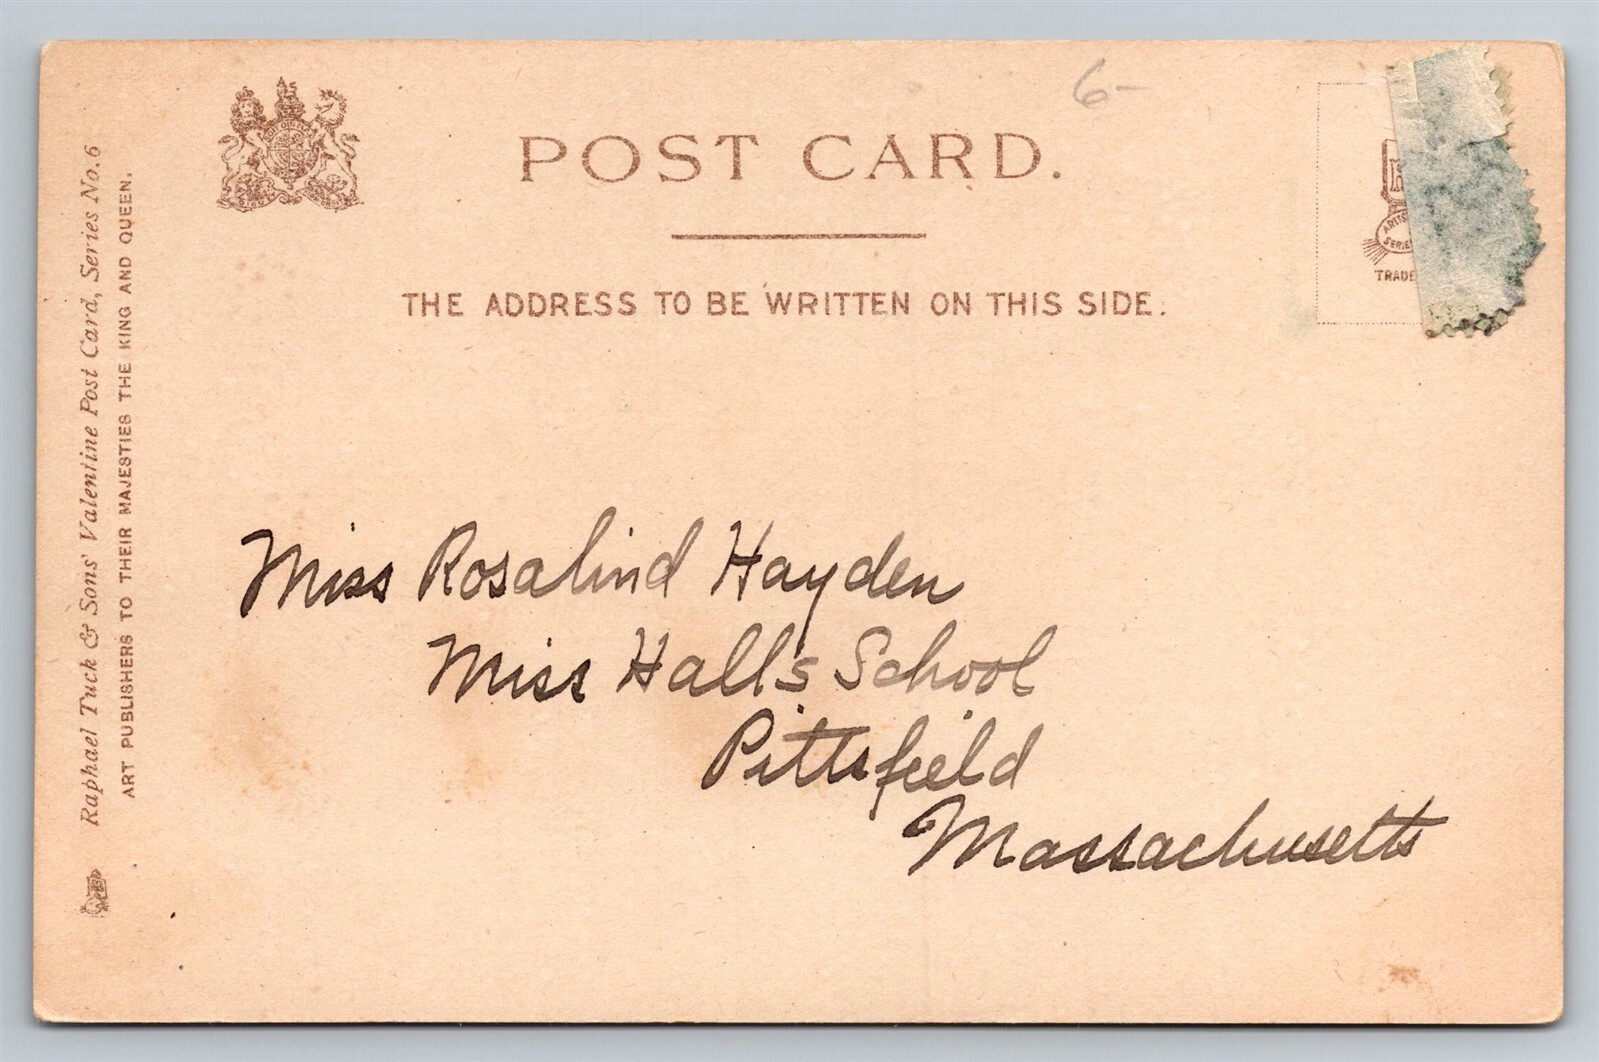 6-
POST CARD.
THE ADDRESS TO BE WRITTEN ON THIS SIDE.
ARTIS
SERIE
TRADE
Raphael Tuck & Sons' Valentine Post Card, Series No. 6
ART PUBLISHERS TO THEIR MAJESTIES THE KING AND QUEEN.
Miss Rosalind Hayden
Miss Hall's School
Pittsfield
Massachusetts